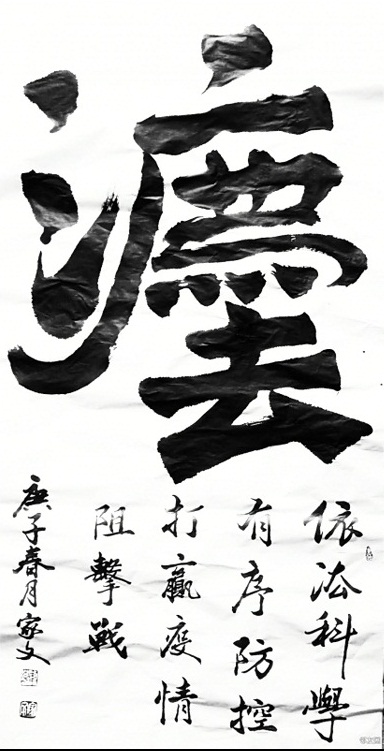 灋
依法科學
有序防控
打贏疫情
阻擊戰
庚子春月家文